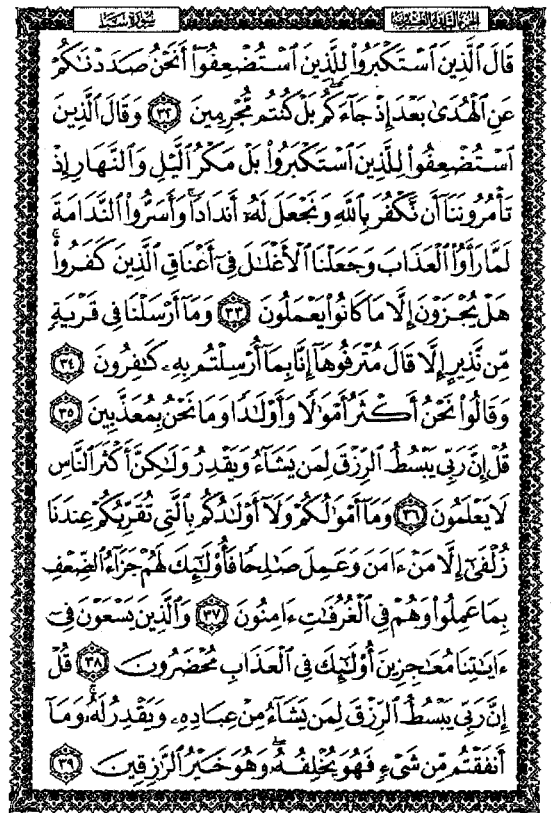 سُورَةُ سَبَإٍ
الجزء الثاني والعشرون
قَالَ ٱلَّذِينَ ٱسْتَكْبَرُواْ لِلَّذِينَ ٱسْتُضْعِفُوٓاْ أَنَحْنُ صَدَدْنَٰكُمْ
عَنِ ٱلْهُدَىٰ بَعْدَ إِذْ جَآءَكُم ۖ بَلْ كُنتُم مُّجْرِمِينَ ٣٢ وَقَالَ ٱلَّذِينَ
ٱسْتُضْعِفُواْ لِلَّذِينَ ٱسْتَكْبَرُواْ بَلْ مَكْرُ ٱلَّيْلِ وَٱلنَّهَارِ إِذْ
تَأْمُرُونَنَآ أَن نَّكْفُرَ بِٱللَّهِ وَنَجْعَلَ لَهُۥٓ أَندَادًا ۚ وَأَسَرُّواْ ٱلنَّدَامَةَ
لَمَّا رَأَوُاْ ٱلْعَذَابَ وَجَعَلْنَا ٱلْأَغْلَٰلَ فِىٓ أَعْنَاقِ ٱلَّذِينَ كَفَرُواْ ۚ
هَلْ يُجْزَوْنَ إِلَّا مَا كَانُواْ يَعْمَلُونَ ٣٣ وَمَآ أَرْسَلْنَا فِى قَرْيَةٍ
مِّن نَّذِيرٍ إِلَّا قَالَ مُتْرَفُوهَآ إِنَّا بِمَآ أُرْسِلْتُم بِهِۦ كَٰفِرُونَ ٣٤
وَقَالُواْ نَحْنُ أَكْثَرُ أَمْوَٰلًا وَأَوْلَٰدًا وَمَا نَحْنُ بِمُعَذَّبِينَ ٣٥
قُلْ إِنَّ رَبِّى يَبْسُطُ ٱلرِّزْقَ لِمَن يَشَآءُ وَيَقْدِرُ وَلَٰكِنَّ أَكْثَرَ ٱلنَّاسِ
لَا يَعْلَمُونَ ٣٦ وَمَآ أَمْوَٰلُكُمْ وَلَآ أَوْلَٰدُكُم بِٱلَّتِى تُقَرِّبُكُمْ عِندَنَا
زُلْفَىٰٓ إِلَّا مَنْ ءَامَنَ وَعَمِلَ صَٰلِحًا فَأُوْلَٰٓئِكَ لَهُمْ جَزَآءُ ٱلضِّعْفِ
بِمَا عَمِلُواْ وَهُمْ فِى ٱلْغُرُفَٰتِ ءَامِنُونَ ٣٧ وَٱلَّذِينَ يَسْعَوْنَ فِىٓ
ءَايَٰتِنَا مُعَٰجِزِينَ أُوْلَٰٓئِكَ فِى ٱلْعَذَابِ مُحْضَرُونَ ٣٨ قُلْ
إِنَّ رَبِّى يَبْسُطُ ٱلرِّزْقَ لِمَن يَشَآءُ مِنْ عِبَادِهِۦ وَيَقْدِرُ لَهُۥ ۚ وَمَآ
أَنفَقْتُم مِّن شَىْءٍ فَهُوَ يُخْلِفُهُۥ ۖ وَهُوَ خَيْرُ ٱلرَّٰزِقِينَ ٣٩